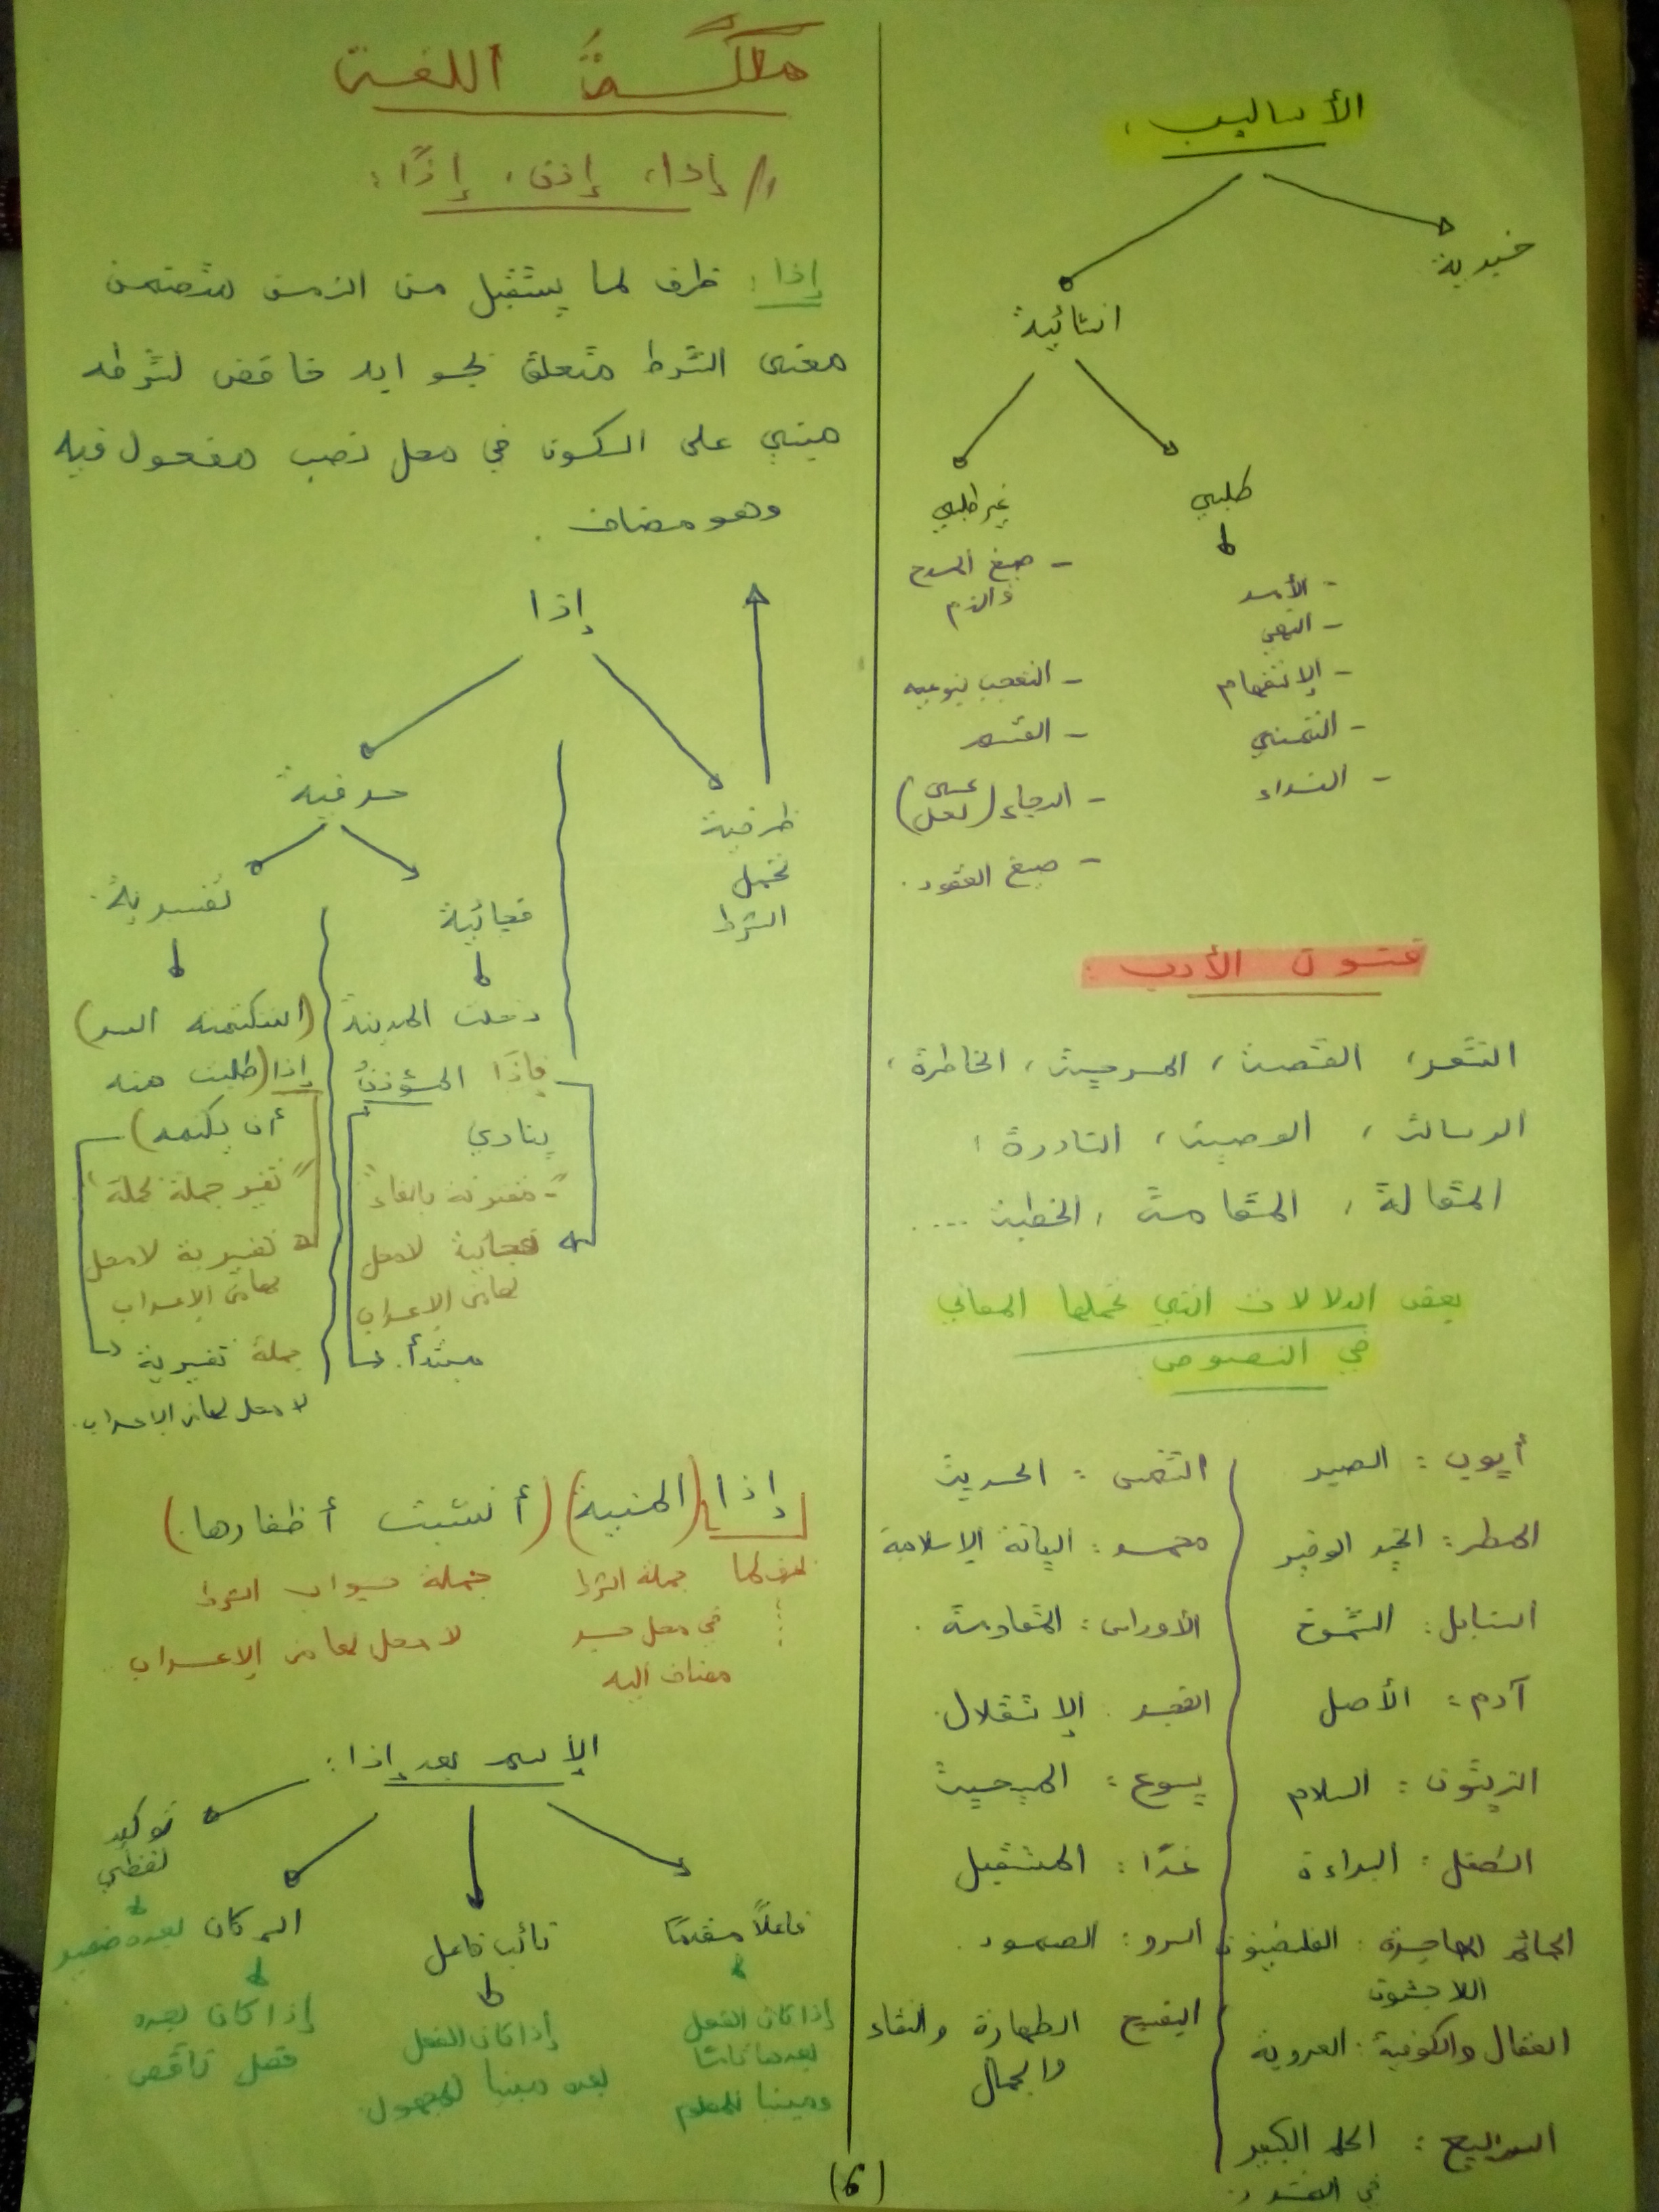 الأساليب :
خبرية
انشائية
طلبي
غير طلبي
- الأمر
- النهي
- الإستفهام
- التمني
- النداء
- صيغ المدح
والذم
- التعجب بنوعيه
- القسم
- الرجاء (عسى
لعل)
- صيغ العقود.
فنون الأدب :
الشعر، القصة، المسرحية، الخاطرة،
الرسالة، الوصية، النادرة،
المقالة، المقامة، الخطبة ....
بعض الدلالات التي تحملها المعاني
في النصوص
أيوب : الصبر
المطر : الخير الوفير
السنابل : الشموخ
آدم : الأصل
الزيتون : السلام
الطفل : البراءة
الحمائم المهاجرة : الفلسطينيون
اللاجئون
العقال والكوفية : العروبة
الربيع : الحلم الكبير
الشمس : الحرية
محمد : الديانة الإسلامية
الأوراس : المقاومة .
الفجر : الإستقلال.
يسوع : المسيحية
غدًا : المستقبل
السرو : الصمود .
البنفسج الطهارة والنقاء
والجمال
ملكـة اللغة
1/ إذا، إذن، إذًا :
إذا : ظرف لما يستقبل من الزمن متضمن
معنى الشرط متعلق بجوابه خافض لشرطه
مبني على السكون في محل نصب مفعول فيه
وهو مضاف .
إذا
ظرفية
تحمل
الشرط
حرفية
فجائية
تفسيرية.
دخلت المدينة
فإذا المؤذنُ
ينادي
"- مقترنة بالفاء"
فجائية لا محل
لها من الإعراب
مبتدأ.
(استكتمته السر)
إذا (طلبت منه
أن يكتمه)
"تفسر جملة بجملة"
تفسيرية لا محل
لها من الإعراب
جملة تفسيرية
لا محل لها من الإعراب.
إذا (المنية) (أنشبت أظفارها.)
ظرف لما
جملة الشرط
في محل جر
مضاف اليه
جملة جواب الشرط
لا محل لها من الإعراب
الإسم بعد إذا :
فاعلاً مقدمًا
إذا كان الفعل
بعدها تامًا
ومبنيا للمعلوم
نائب فاعل
إذا كان الفعل
بعده مبنيا للمجهول
اسم كان
إذا كان بعده
فعل ناقص
توكيد
لفظي
بعده ضمير
(6)